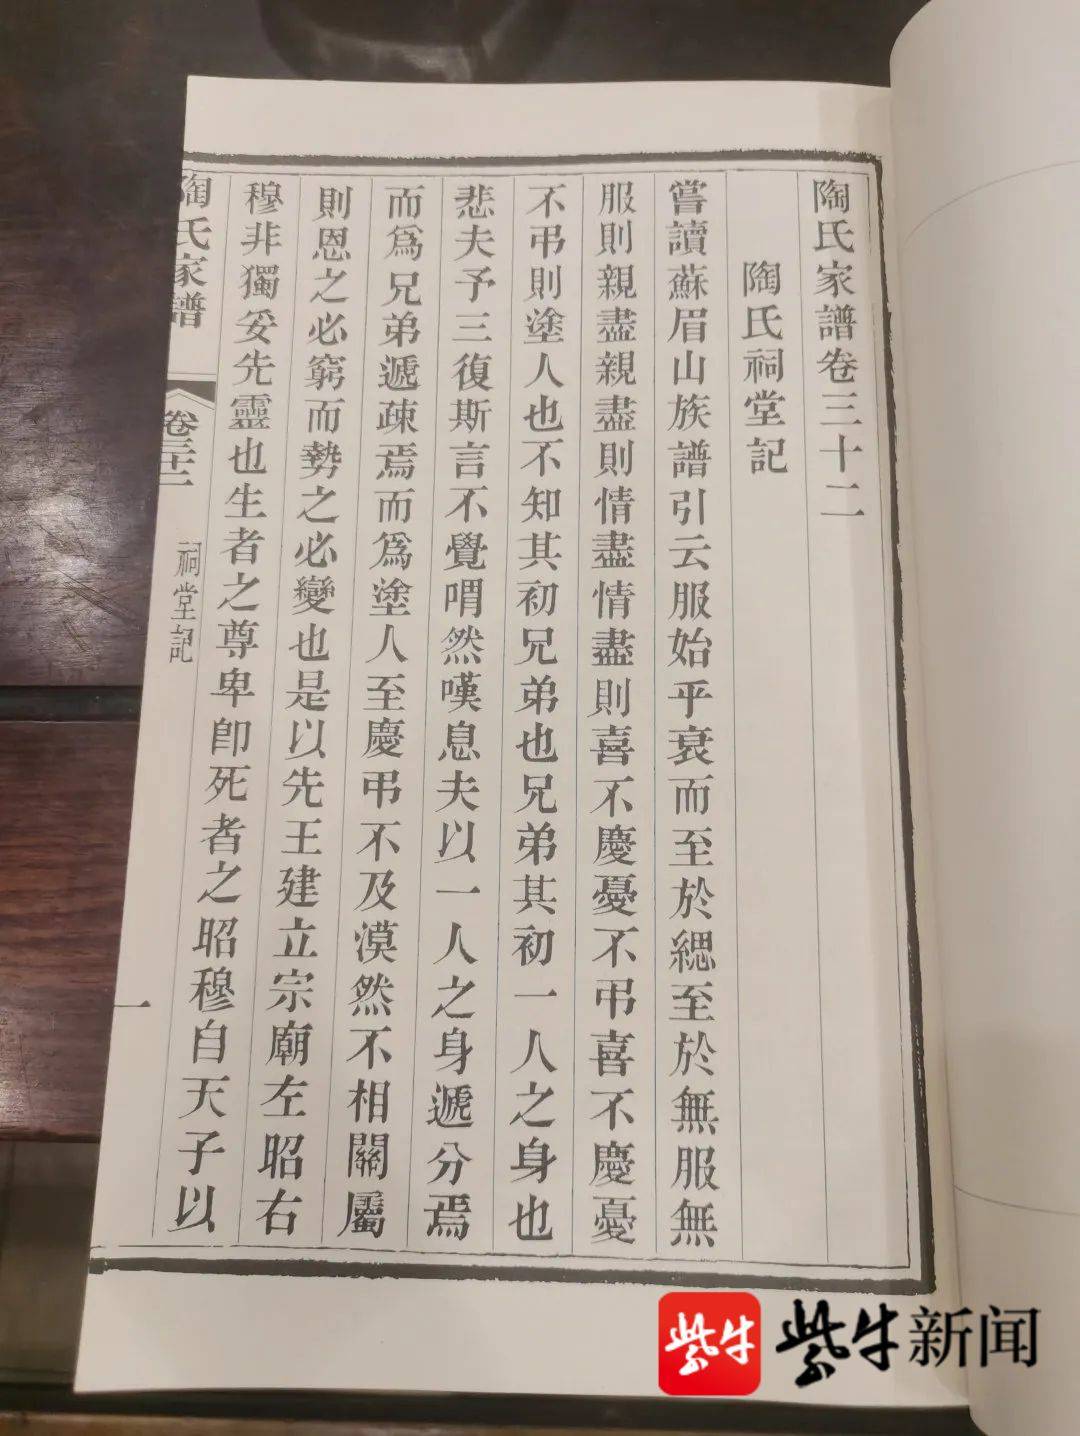 陶氏家譜卷三十二
陶氏祠堂記
嘗讀蘇眉山族譜引云服始乎衰而至於緦至於無服無
服則親盡親盡則情盡情盡則喜不慶憂不弔喜不慶憂
不弔則塗人也不知其初兄弟也兄弟其初一人之身也
悲夫予三復斯言不覺喟然嘆息夫以一人之身遞分焉
而爲兄弟遞疎焉而爲塗人至慶弔不及漠然不相關屬
則恩之必窮而勢之必變也是以先王建立宗廟左昭右
穆非獨妥先靈也生者之尊卑卽死者之昭穆自天子以
陶氏家譜
卷三十二
祠堂記
一
紫牛
紫牛新闻